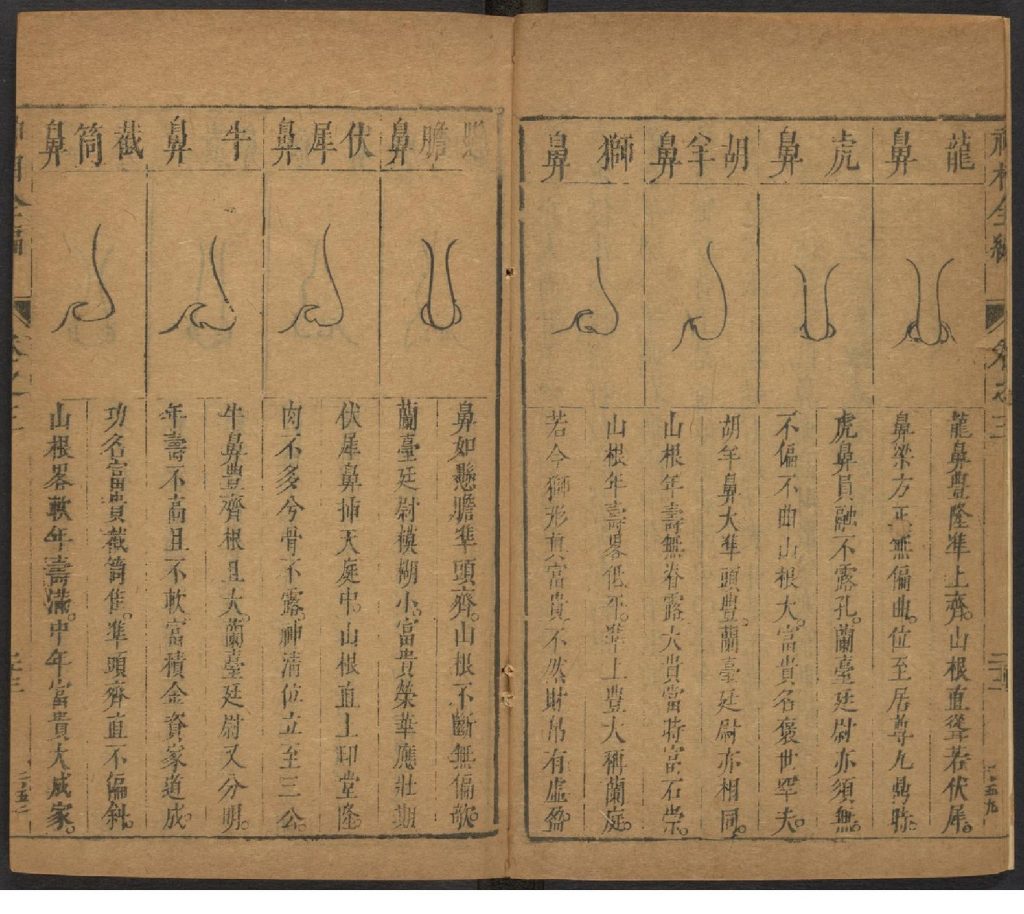 神相全編
卷之三
龍鼻
龍鼻豐隆準上齊。山根直聳若伏犀。
鼻梁方正無偏曲。位至居尊九鼎時。
虎鼻
虎鼻員融不露孔。蘭臺廷尉亦須無。
不偏不曲山根大。富貴名褒世罕夫。
胡羊鼻
胡羊鼻大準頭豐。蘭臺廷尉亦相同。
山根年壽無脊露。大貴當時富石崇。
獅鼻
山根年壽畧低平。準上豐大稱蘭庭。
若合獅形真富貴。不然財帛有虛盈。
懸膽鼻
鼻如懸膽準頭齊。山根不斷無偏欹。
蘭臺廷尉模糊小。富貴榮華應壯期
伏犀鼻
伏犀鼻揷天庭中。山根直上印堂隆。
肉不多兮骨不露。神清位立至三公。
牛鼻
牛鼻豐齊根且大。蘭臺廷尉又分明。
年壽不高且不軟。富積金資家道成。
截筒鼻
功名富貴截筒隹。準頭齊直不偏斜。
山根畧軟年壽滿。中年富貴大成家。
卷之三